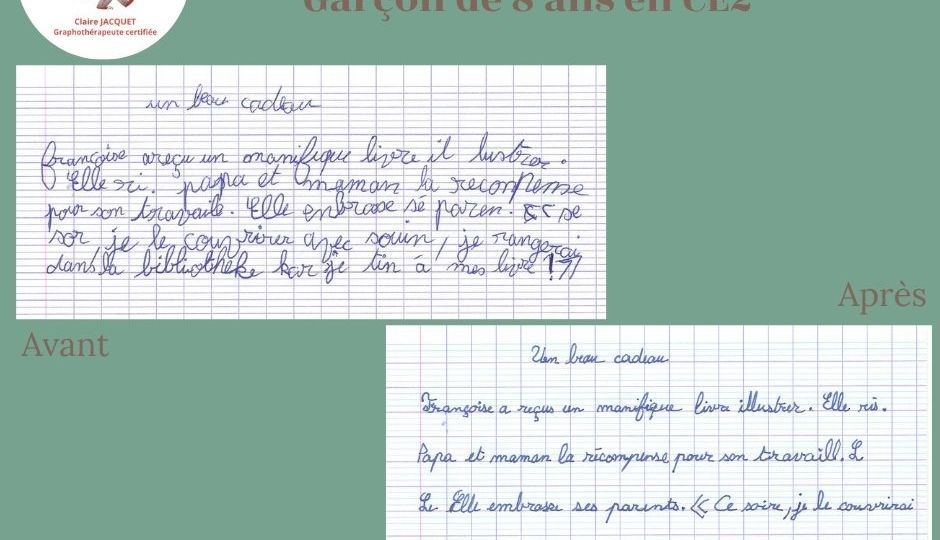 Claire JACQUET
Graphothérapeute certifiée
Garçon de 8 ans en CE2
un beau cadeau
françoise areçu un manifique livre il lustrer.
Elle ri. papa et maman la reconpense
pour son travaile. Elle enbrase sé paren. << se
sor, je le couvrirer avec souin, je rangerai
dans la bibliothèke kar je tin à mes livre !>>
Après
Avant
Un beau cadeau
Françoise a reçus un manifique livre illustrer. Elle ris.
Papa et maman la récompense pour son travaill. L
Le Elle embrase ses parents. << Ce soire, je le couvrirai